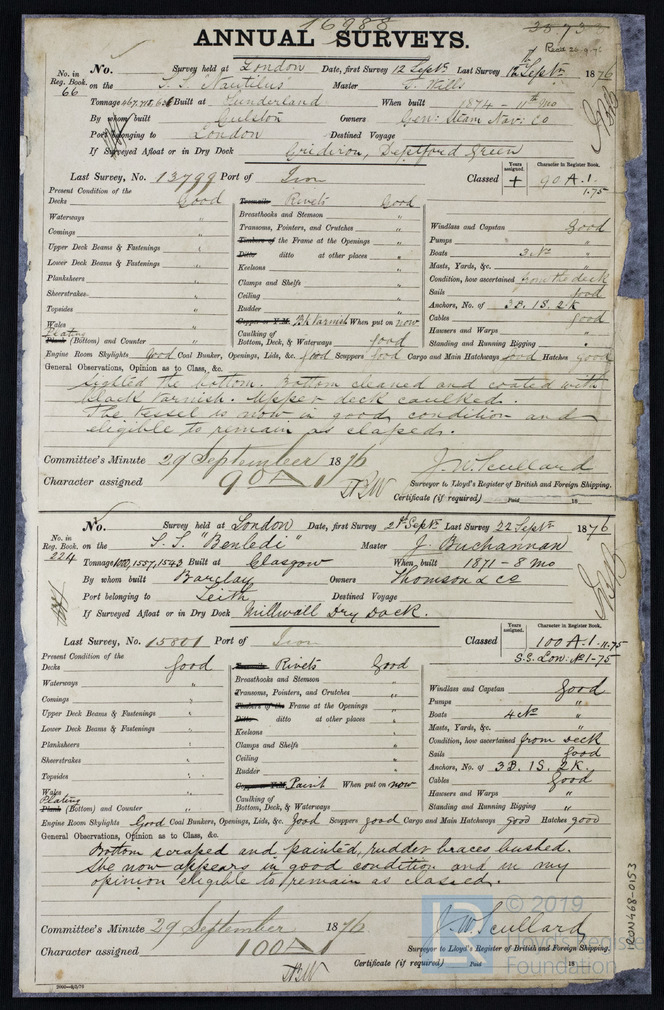 16988
ANNUAL SURVEYS.
Rec'd 26.9.76
No. in Reg. Book. 66
No. Survey held at London Date, first Survey 12 Septr. Last Survey 12 Septr. 1876
on the S.S. "Nautilus" Master Wills
Tonnage Built at Sunderland When built 1874 - 11th mo
By whom built Owners Gen: Steam Nav: Co
Port belonging to London Destined Voyage
If Surveyed Afloat or in Dry Dock Gridiron, Deptford Green
Last Survey, No. 13799 Port of Iron Classed
Years assigned.
Character in Register Book.
+ 90 A.1.
1.75
Present Condition of the
Decks Good
Waterways "
Comings "
Upper Deck Beams & Fastenings "
Lower Deck Beams & Fastenings "
Planksheers "
Sheerstrakes "
Topsides "
Wales "
Plating
Plank (Bottom) and Counter "
Treenails Rivets Good
Breasthooks and Stemson "
Transoms, Pointers, and Crutches "
Timbers of the Frame at the Openings "
Ditto ditto at other places "
Keelsons "
Clamps and Shelfs "
Ceiling "
Rudder "
Copper or Y.M. Blk Varnish When put on now
Caulking of
Bottom, Deck, & Waterways Good
Windlass and Capstan Good
Pumps "
Boats 3 No "
Masts, Yards, &c. "
Condition, how ascertained from the deck
Sails Good
Anchors, No. of 3B. 1S. 2K
Cables Good
Hawsers and Warps "
Standing and Running Rigging "
Engine Room Skylights Good Coal Bunker, Openings, Lids, &c. good Scuppers good Cargo and Main Hatchways good Hatches good
General Observations, Opinion as to Class, &c.
Sighted the bottom. Bottom cleaned and coated with
black varnish. Upper deck caulked.
The vessel is now in good condition and
eligible to remain as classed.
Committee's Minute 29 September 1876
Character assigned 90 A 1
J. W. Scullard
Surveyor to Lloyd's Register of British and Foreign Shipping.
Certificate (if required) Paid 18
No. in Reg. Book. 224
No. Survey held at London Date, first Survey 21st Septr. Last Survey 22 Septr. 1876
on the S.S. "Benledi" Master J. Buchannan
Tonnage 1000, 1557, 1543 Built at Glasgow When built 1871 - 8 mo
By whom built Barclay Owners Thomson & Co
Port belonging to Leith Destined Voyage
If Surveyed Afloat or in Dry Dock Millwall Dry Dock.
Last Survey, No. 15801 Port of Iron Classed
Years assigned.
Character in Register Book.
100 A.1. 11.75
S.S. Lon. No 1-75
Present Condition of the
Decks Good
Waterways "
Comings "
Upper Deck Beams & Fastenings "
Lower Deck Beams & Fastenings "
Planksheers "
Sheerstrakes "
Topsides "
Wales "
Plating
Plank (Bottom) and Counter "
Treenails Rivets Good
Breasthooks and Stemson "
Transoms, Pointers, and Crutches "
Timbers of the Frame at the Openings "
Ditto ditto at other places "
Keelsons "
Clamps and Shelfs "
Ceiling "
Rudder "
Copper or Y.M. Paint When put on now
Caulking of
Bottom, Deck, & Waterways "
Windlass and Capstan Good
Pumps "
Boats 4 No "
Masts, Yards, &c. "
Condition, how ascertained from Deck
Sails Good
Anchors, No. of 3B. 1S. 2K.
Cables Good
Hawsers and Warps "
Standing and Running Rigging "
Engine Room Skylights Good Coal Bunkers, Openings, Lids, &c. Good Scuppers good Cargo and Main Hatchways good Hatches good
General Observations, Opinion as to Class, &c.
Bottom scraped and painted, rudder braces bushed.
She now appears in good condition and in my
opinion eligible to remain as classed.
Committee's Minute 29 September 1876
Character assigned 100 A 1
J. W. Scullard
Surveyor to Lloyd's Register of British and Foreign Shipping.
Certificate (if required) Paid 18
IRON468-0153
© 2019
Lloyd's Register
Foundation